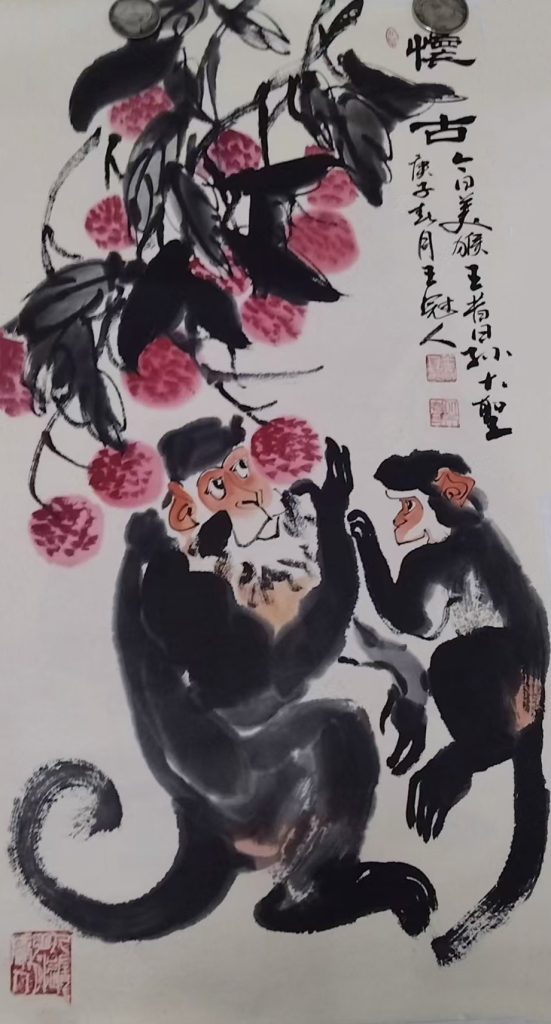 懷古
今日美猴王昔日孙大聖
庚子春月王冠人